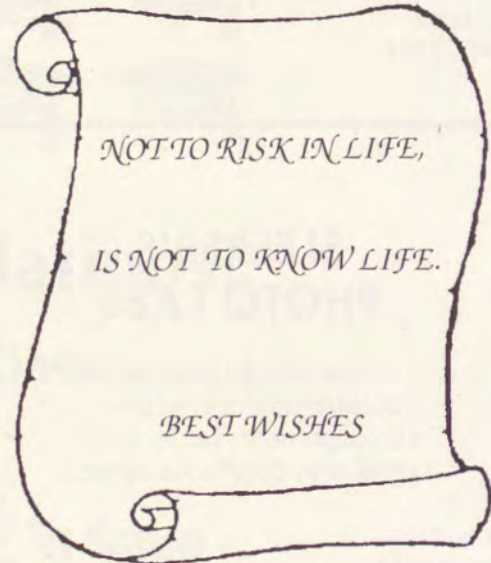 NOT TO RISK IN LIFE,
IS NOT TO KNOW LIFE.
BEST WISHES